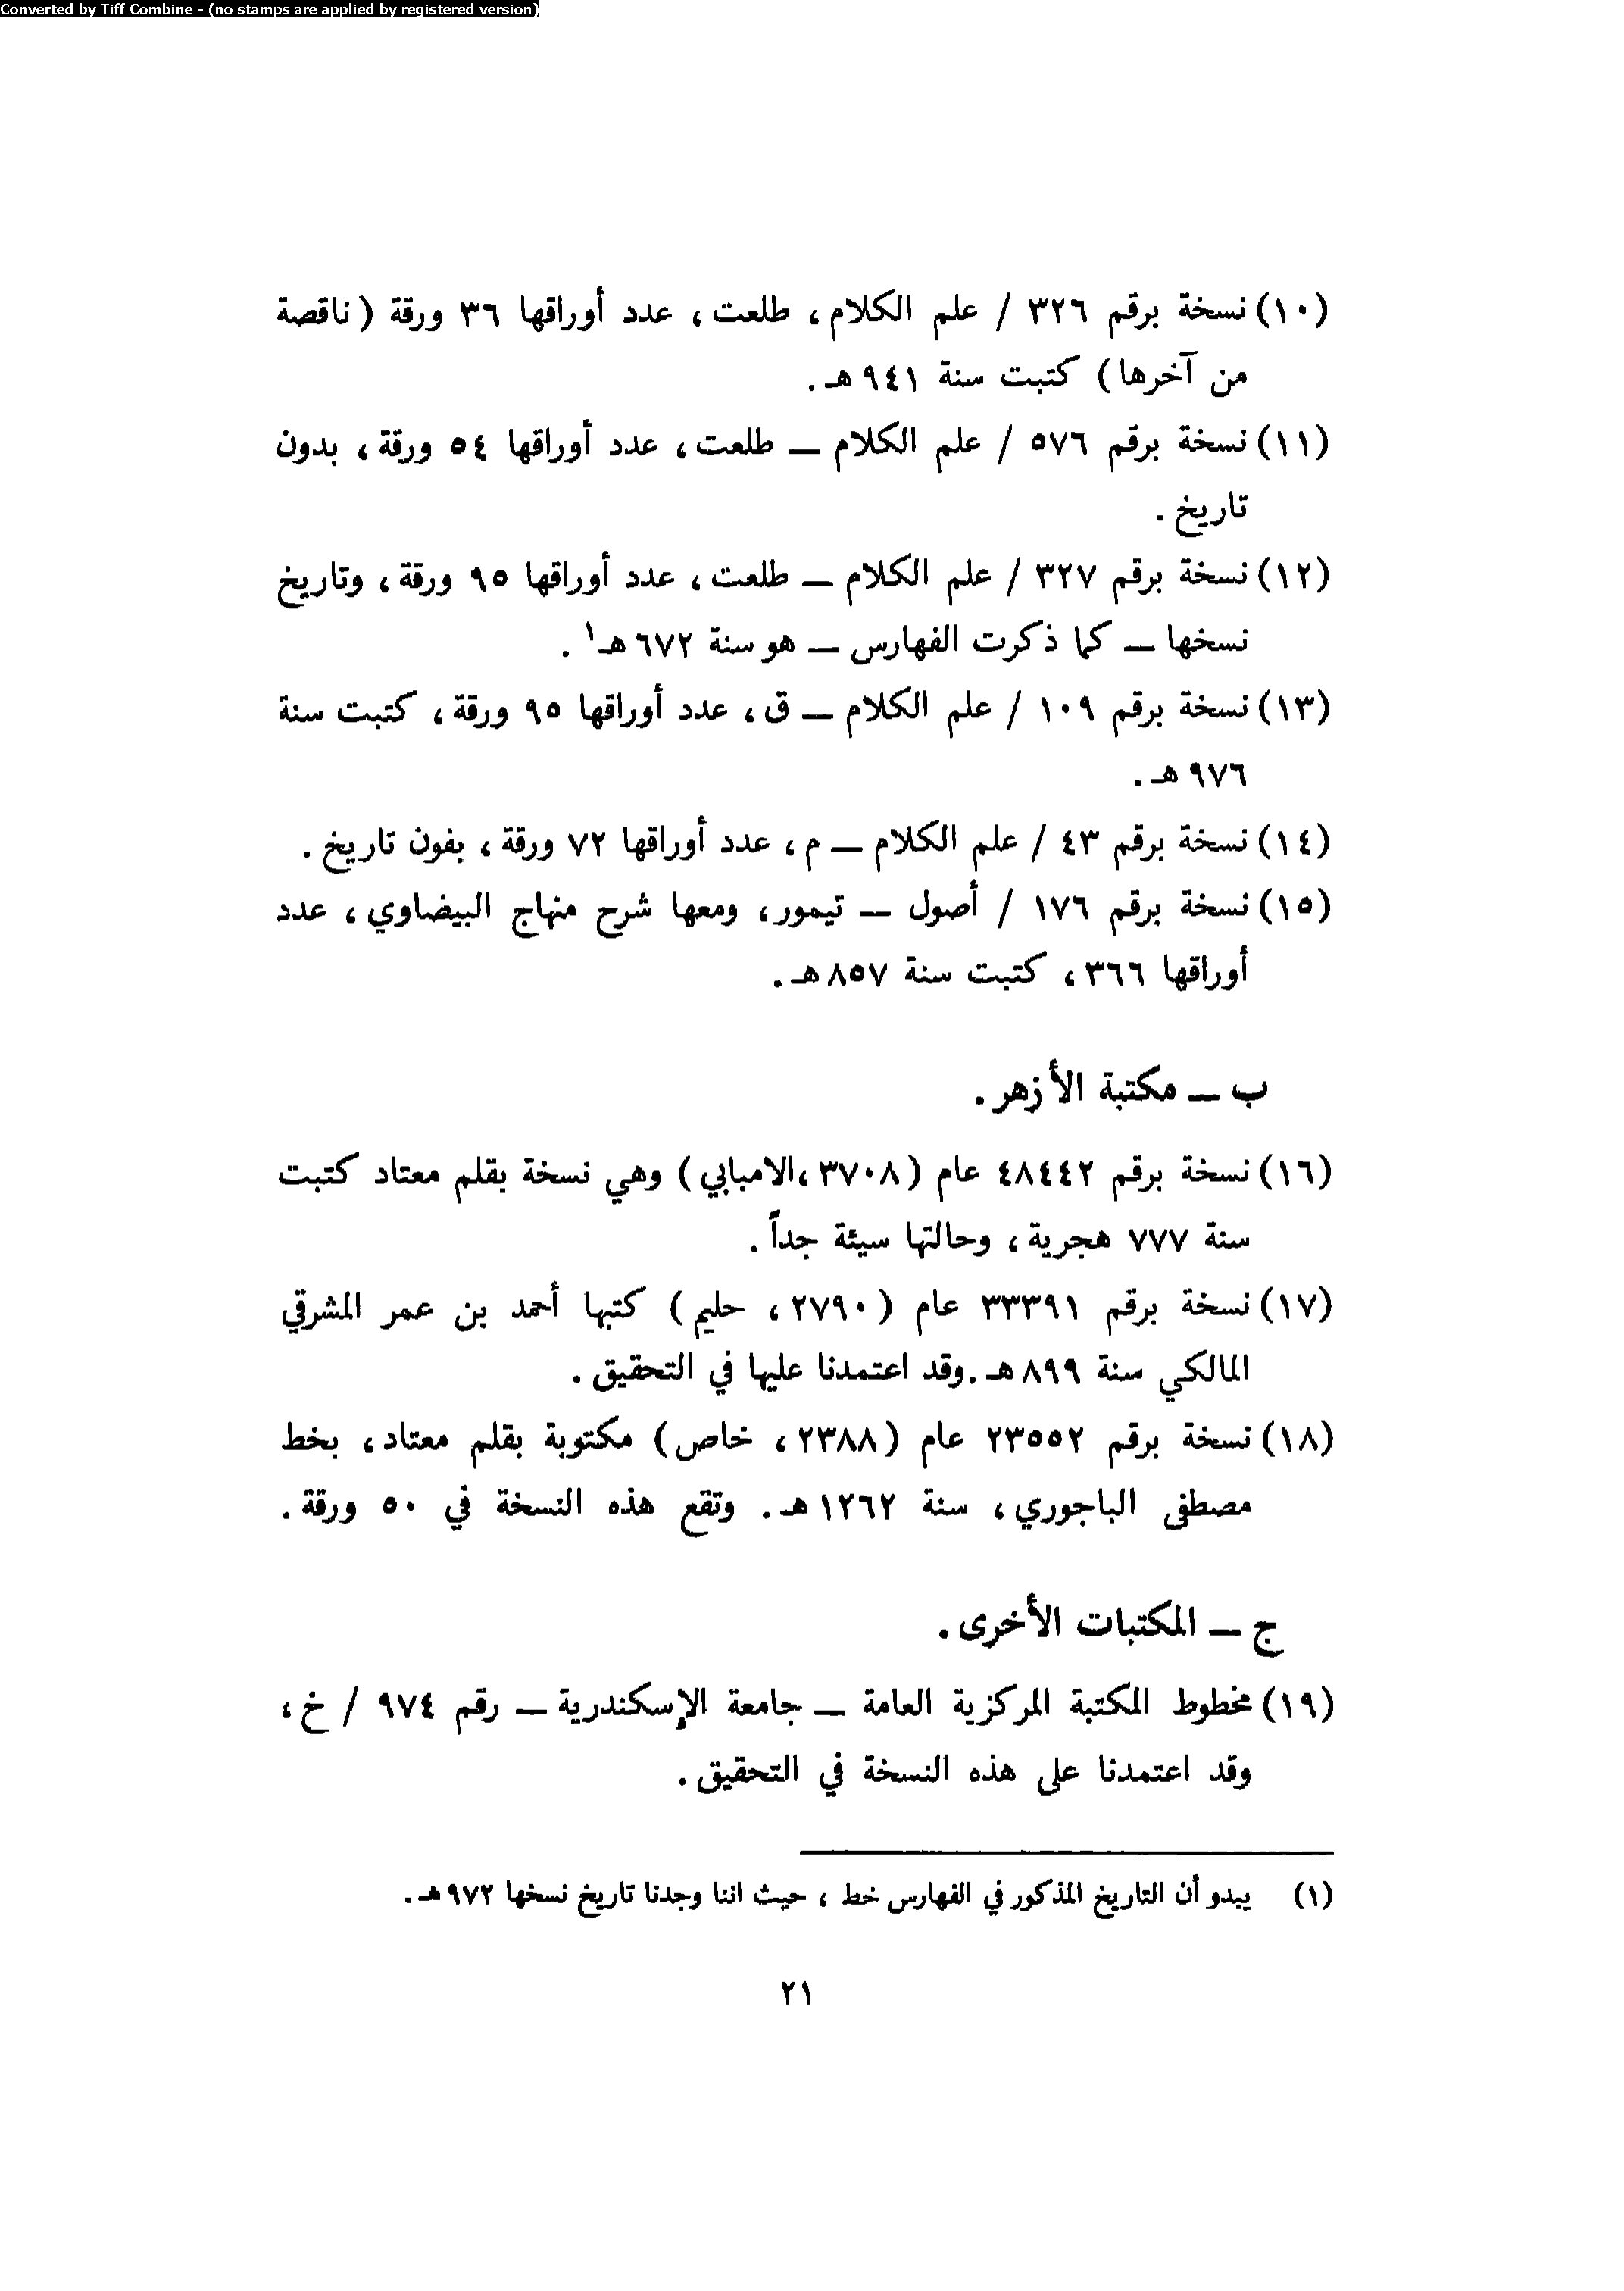 Converted by Tiff Combine - (no stamps are applied by registered version)
(١٠) نسخة برقم ٣٢٦ / علم الكلام، طلعت، عدد أوراقها ٣٦ ورقة (ناقصة
من آخرها) كتبت سنة ٩٤١ هـ.
(١١) نسخة برقم ٥٧٦ / علم الكلام — طلعت، عدد أوراقها ٥٤ ورقة، بدون
تاريخ.
(١٢) نسخة برقم ٣٢٧ / علم الكلام — طلعت، عدد أوراقها ٩٥ ورقة، وتاريخ
نسخها — كما ذكرت الفهارس — هو سنة ٦٧٢ هـ١.
(١٣) نسخة برقم ١٠٩ / علم الكلام — ق، عدد أوراقها ٩٥ ورقة، كتبت سنة
٩٧٦ هـ.
(١٤) نسخة برقم ٤٣ / علم الكلام — م، عدد أوراقها ٧٢ ورقة، بفون تاريخ.
(١٥) نسخة برقم ١٧٦ / أصول — تيمور، ومعها شرح منهاج البيضاوي، عدد
أوراقها ٣٦٦، كتبت سنة ٨٥٧ هـ.
ب — مكتبة الأزهر.
(١٦) نسخة برقم ٤٨٤٤٢ عام (٣٧٠٨،الامبابي) وهي نسخة بقلم معتاد كتبت
سنة ٧٧٧ هجرية، وحالتها سيئة جداً.
(١٧) نسخة برقم ٣٣٣٩١ عام (٢٧٩٠، حليم) كتبها أحمد بن عمر المشرقي
المالكي سنة ٨٩٩ هـ.وقد اعتمدنا عليها في التحقيق.
(١٨) نسخة برقم ٢٣٥٥٢ عام (٢٣٨٨، خاص) مكتوبة بقلم معتاد، بخط
مصطفى الباجوري، سنة ١٢٦٢ هـ. وتقع هذه النسخة في ٥٠ ورقة.
ج — المكتبات الأخرى.
(١٩) مخطوط المكتبة المركزية العامة — جامعة الإسكندرية — رقم ٩٧٤ / خ،
وقد اعتمدنا على هذه النسخة في التحقيق.
(١) يبدو أن التاريخ المذكور في الفهارس خط، حيث اننا وجدنا تاريخ نسخها ٩٧٢ هـ.
٢١